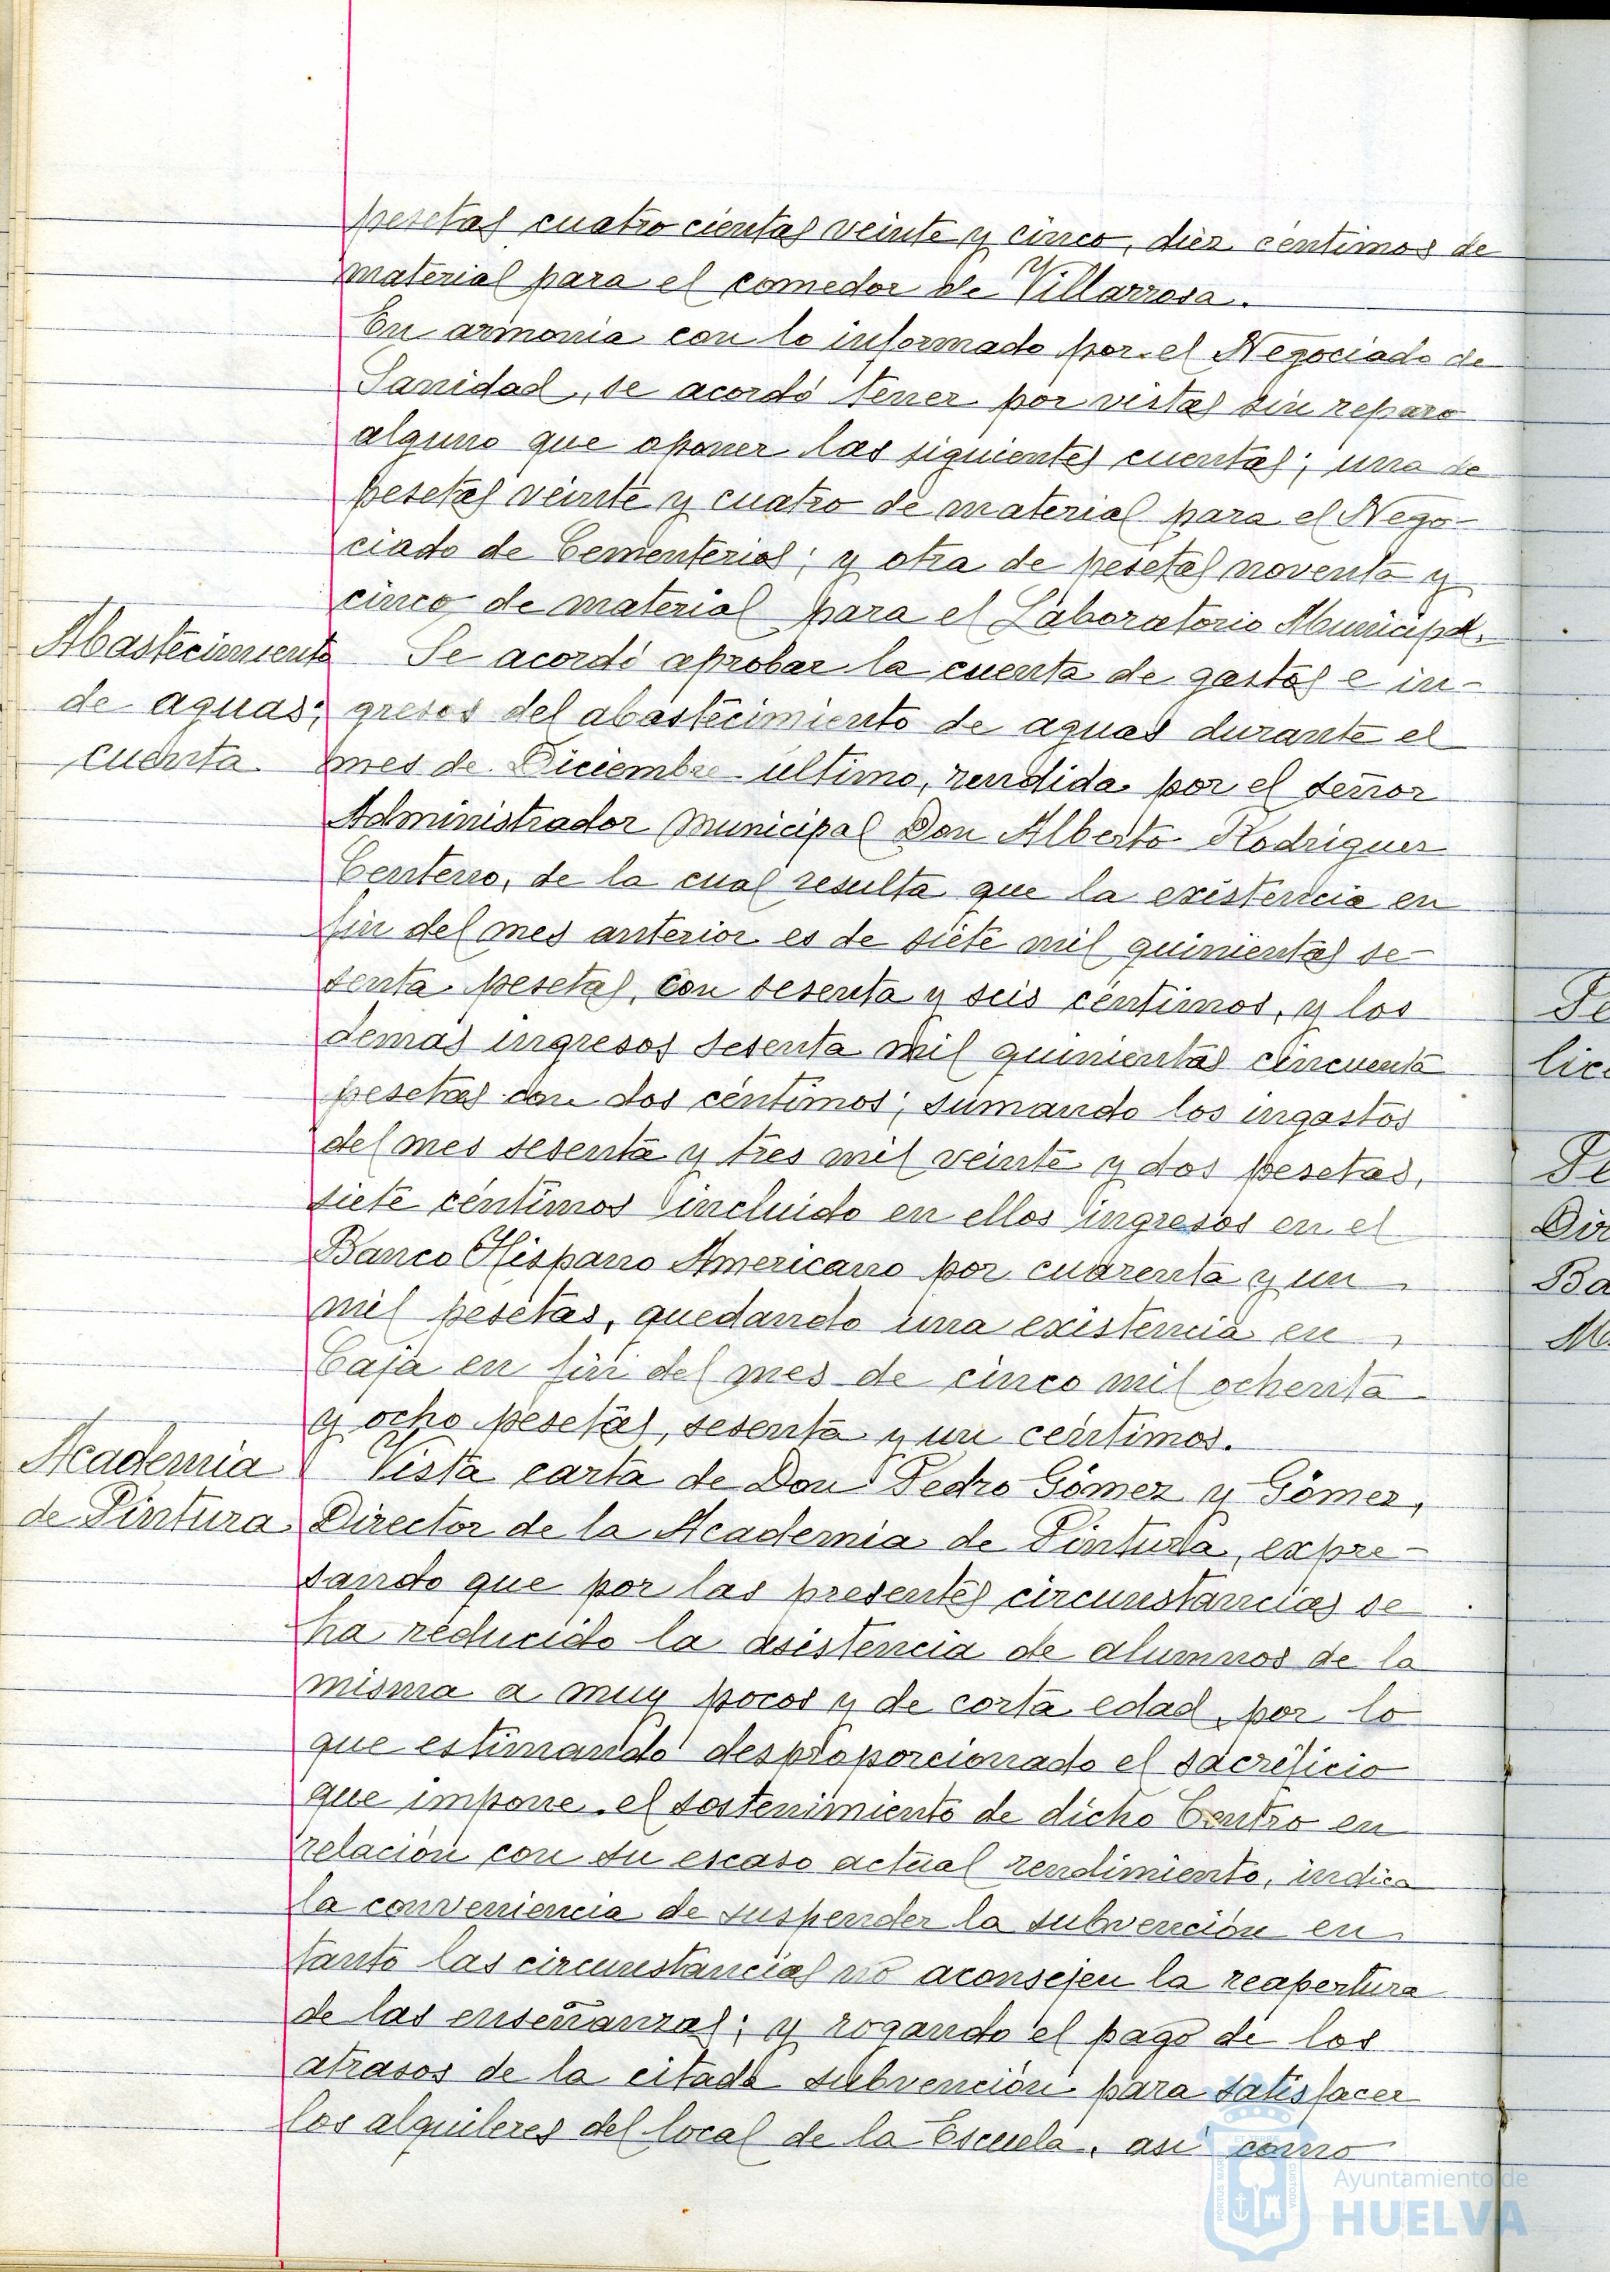 pesetas cuatro cientas veinte y cinco, diez céntimos de
material para el comedor de Villarrosa.
En armonia con lo informado por el Negociado de
Sanidad, se acordó tener por vistas sin reparo
alguno que oponer las siguientes cuentas; una de
pesetas veinte y cuatro de material para el Nego-
ciado de Cementerios; y otra de pesetas noventa y
cinco de material para el Laboratorio Municipal.
Abastecimiento
de aguas;
cuenta.
Se acordó aprobar la cuenta de gastos e in-
gresos del abastecimiento de aguas durante el
mes de Diciembre último, rendida por el señor
Administrador Municipal Don Alberto Rodriguez
Centeno, de la cual resulta que la existencia en
fin del mes anterior es de siete mil quinientas se-
senta pesetas, con sesenta y seis céntimos, y los
demás ingresos sesenta mil quinientas cincuenta
pesetas con dos céntimos; sumando los ingastos
del mes sesenta y tres mil veinte y dos pesetas,
siete céntimos incluido en ellos ingresos en el
Banco Hispano Americano por cuarenta y un
mil pesetas, quedando una existencia en
Caja en fin del mes de cinco mil ochenta
y ocho pesetas, sesenta y un céntimos.
Academia
de Pintura
Vista carta de Don Pedro Gómez y Gómez,
Director de la Academia de Pintura, expre-
sando que por las presentes circunstancias se
ha reducido la asistencia de alumnos de la
misma a muy pocos y de corta edad, por lo
que estimando desproporcionado el sacrificio
que impone el sostenimiento de dicho Centro en
relación con su escaso actual rendimiento, indica
la conveniencia de suspender la subvención en
tanto las circunstancias no aconsejen la reapertura
de las enseñanzas; y rogando el pago de los
atrasos de la citada subvención para satisfacer
los alquileres del local de la Escuela, asi como
Pe
lice
Pe
Dir
Ba
Mu
Ayuntamiento de
HUELVA